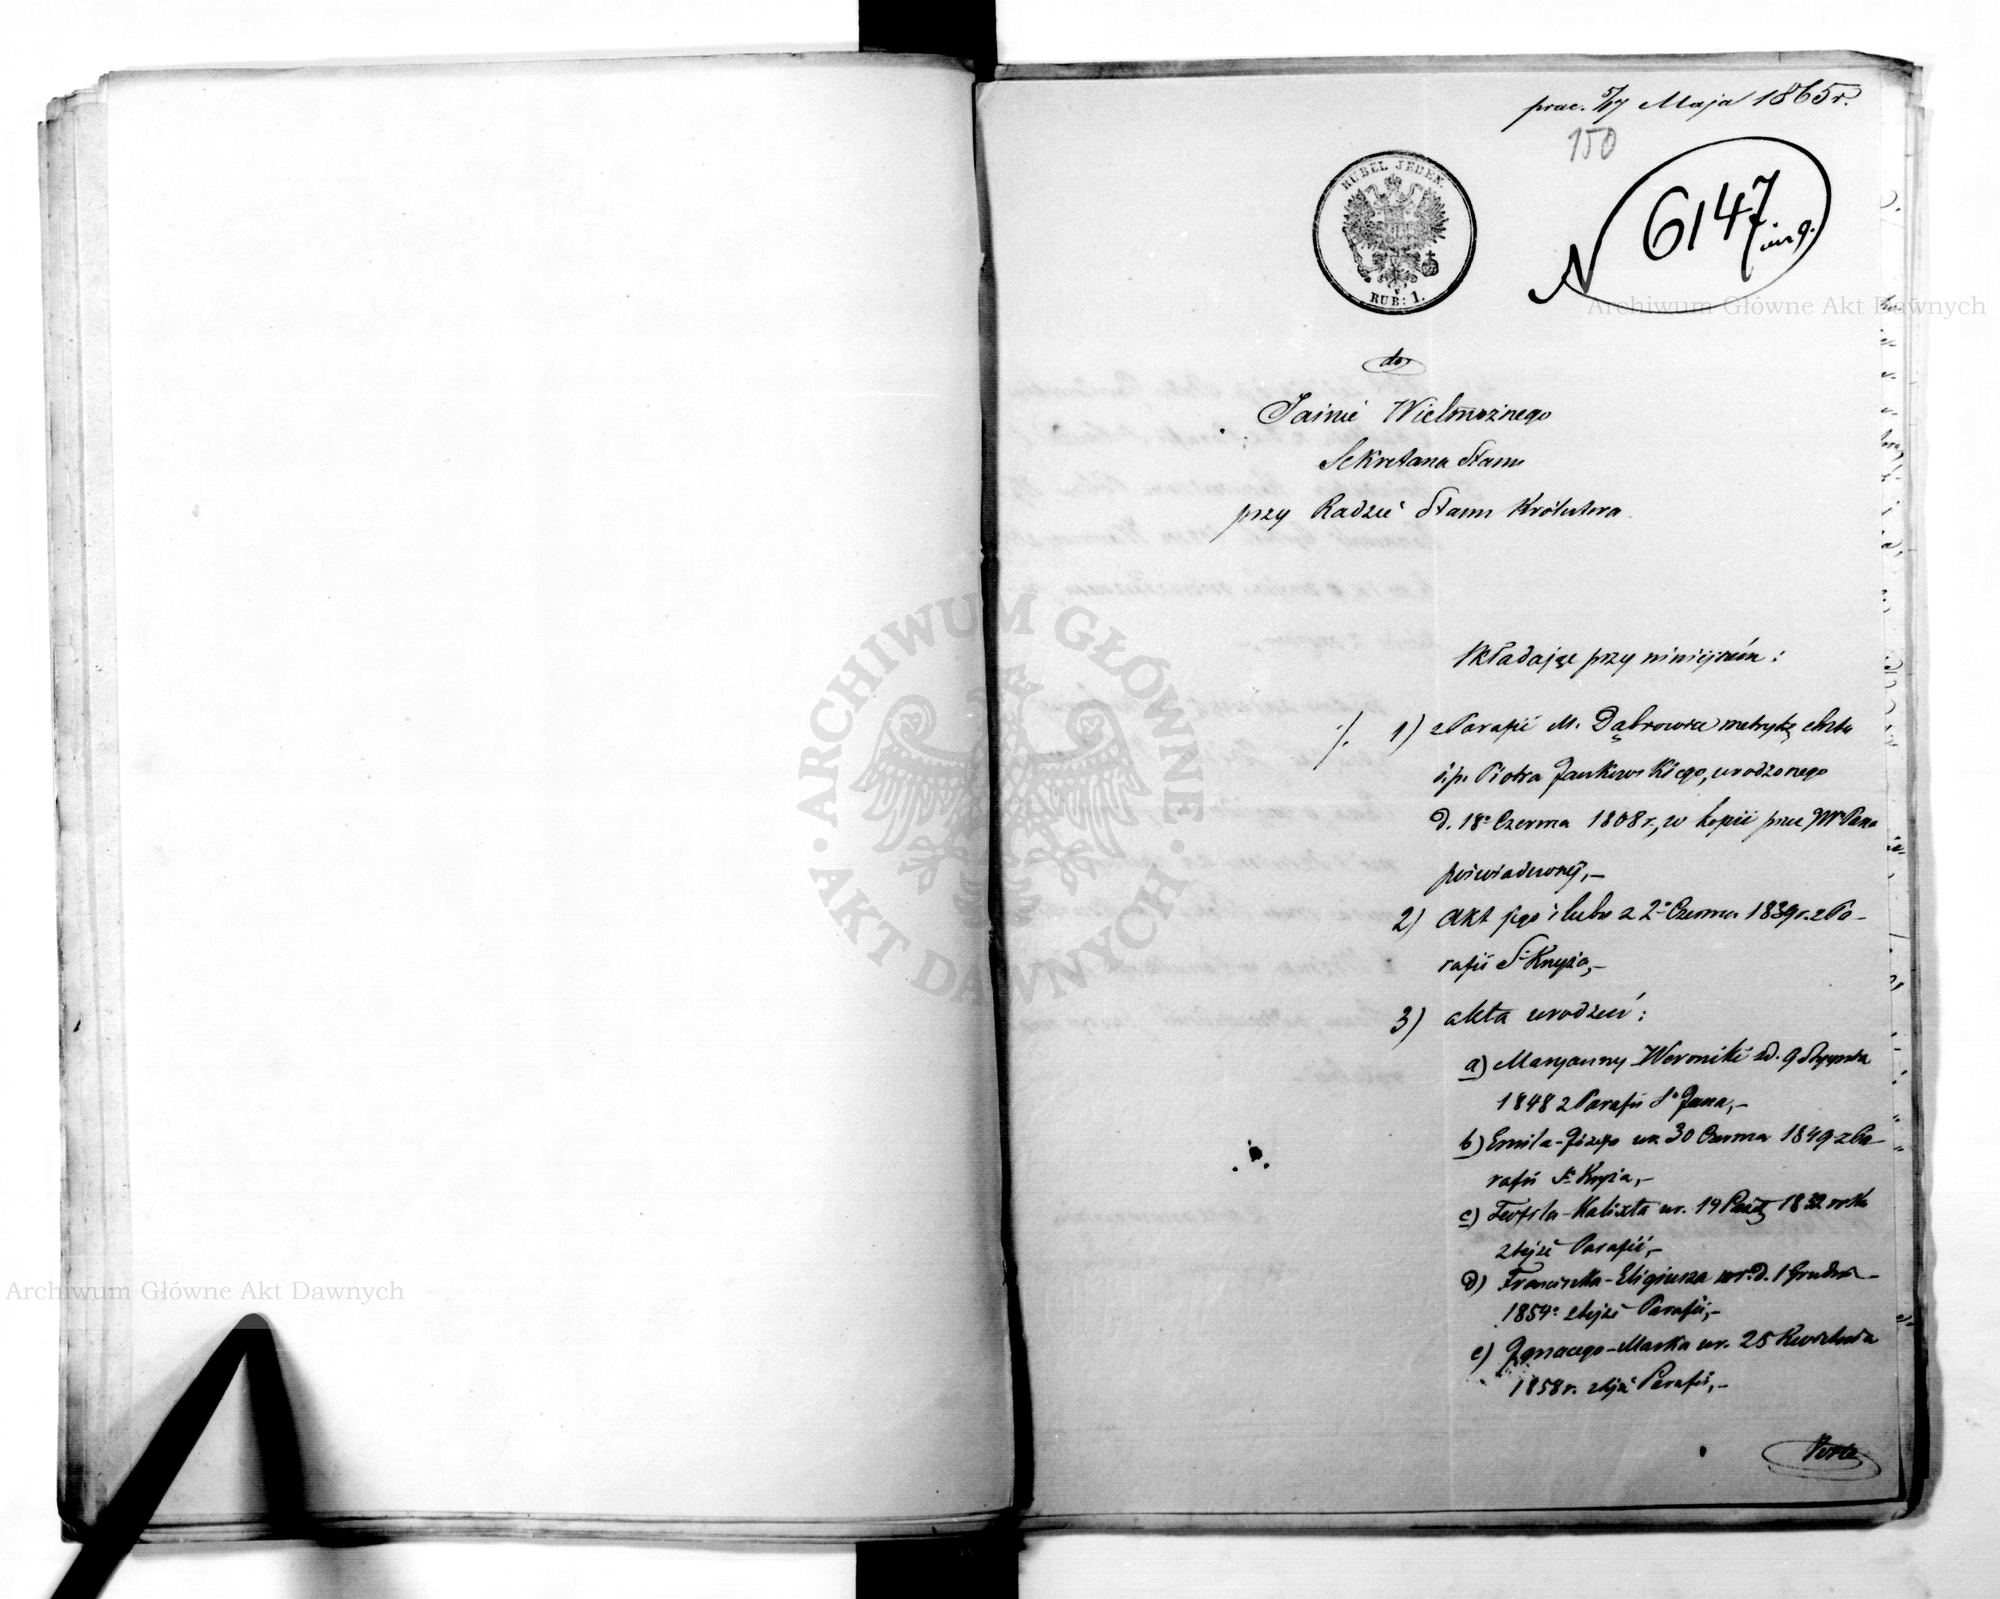 prac. 5/17 Maja 1865 r.
150
RUBEL JEDEN.
RUB: 1.
N 6147
do
Jaśnie Wielmożnego
Sekretarza Stanu
przy Radzie Stanu Królestwa
Składając przy niniejszém:
1) z Parafii M. Dąbrowica metrykę chrztu
ś.p. Piotra Jankowskiego, urodzonego
d. 18 Czerwca 1808 r., w kopii przez
poświadczonej,-
2) Akt jego ślubu z 2 Czerwca 1839 r. z Pa-
rafii S. Krzyża,-
3) akta urodzeń:
a) Maryanny-Weroniki d. 9 Stycznia
1848 z Parafii S. Jana,-
b) Emila-Józefa ur. 30 Czerwca 1849 z Pa-
rafii S. Krzyża,-
c) Teofila-Kalixta ur. 14 Paźdz 1852 roku
z tejże Parafii,-
d) Franciszka-Eligiusza ur. d. 1 Grudnia
1854 z tejże Parafii,-
e) Ignacego-Marka ur. 25 Kwietnia
1858 r. z tejże Parafii,-
Archiwum Główne Akt Dawnych
ARCHIWUM GŁÓWNE · AKT DAWNYCH ·
Archiwum Główne Akt Dawnych